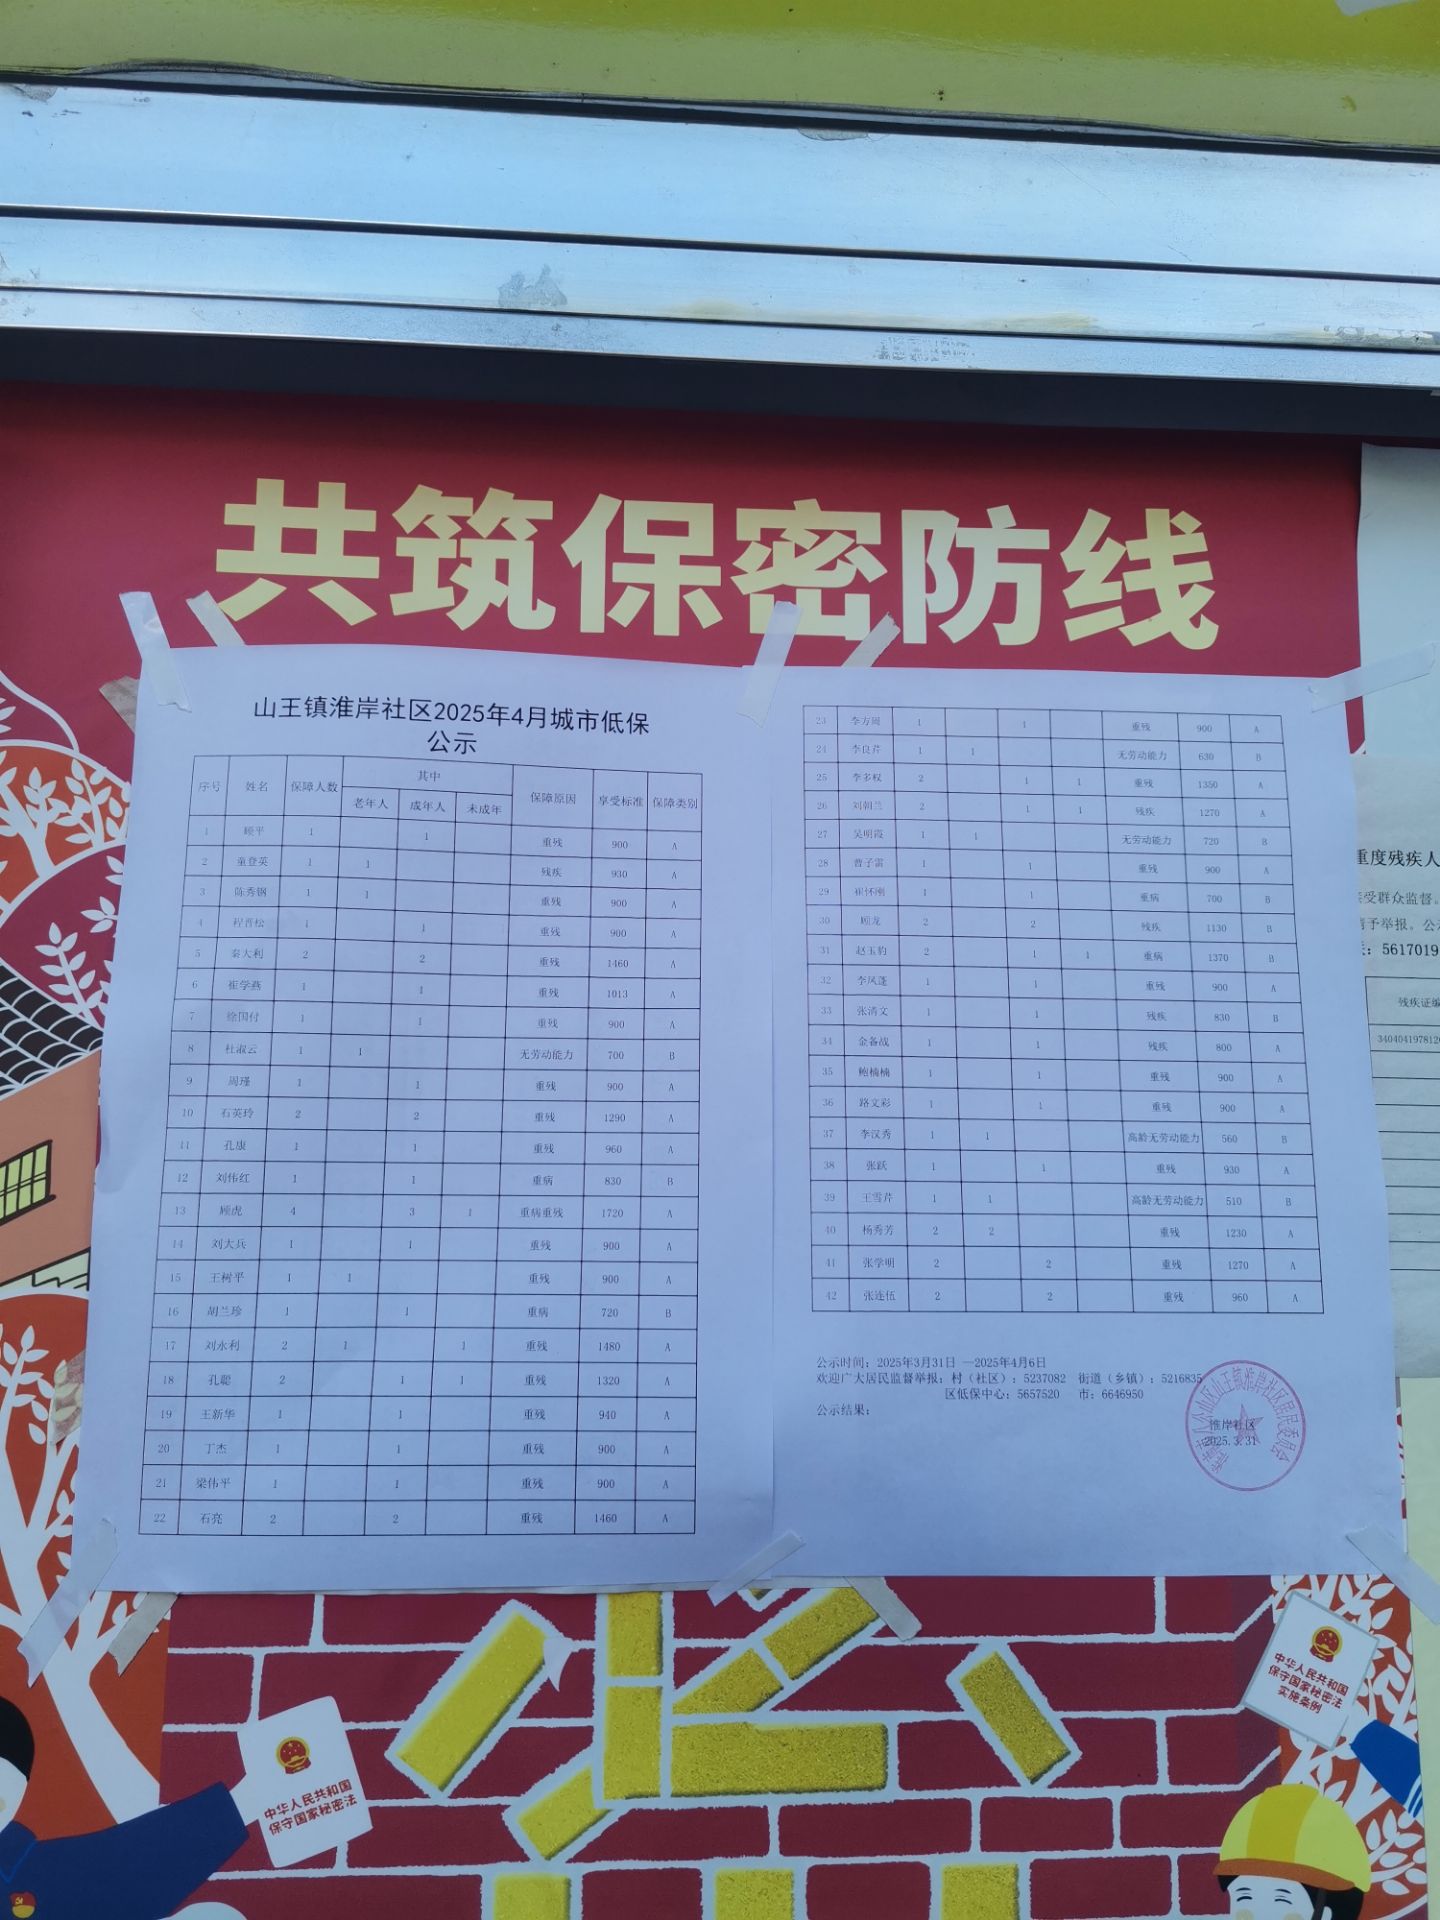 共筑保密防线
山王镇淮岸社区2025年4月城市低保
公示
序号 姓名 保障人数 其中 保障原因 享受标准 保障类别
老年人 成年人 未成年
1 顾平 1 1 重残 900 A
2 童登英 1 1 残疾 930 A
3 陈秀钢 1 1 重残 900 A
4 程晋松 1 1 重残 900 A
5 秦大利 2 2 重残 1460 A
6 崔学燕 1 1 重残 1013 A
7 徐国付 1 1 重残 900 A
8 杜淑云 1 1 无劳动能力 700 B
9 周瑾 1 1 重残 900 A
10 石英玲 2 2 重残 1290 A
11 孔康 1 1 重残 960 A
12 刘伟红 1 1 重病 830 B
13 顾虎 4 3 1 重病重残 1720 A
14 刘大兵 1 1 重残 900 A
15 王树平 1 1 重残 900 A
16 胡兰珍 1 1 重病 720 B
17 刘永利 2 1 1 重残 1480 A
18 孔聪 2 1 1 重残 1320 A
19 王新华 1 1 重残 940 A
20 丁杰 1 1 重残 900 A
21 梁伟平 1 1 重残 900 A
22 石亮 2 2 重残 1460 A
23 李方周 1 1 重残 900 A
24 李良芹 1 1 无劳动能力 630 B
25 李多权 2 1 1 重残 1350 A
26 刘朝兰 2 1 1 残疾 1270 A
27 吴明霞 1 1 无劳动能力 720 B
28 曹子雷 1 1 重残 900 A
29 崔怀刚 1 1 重病 700 B
30 顾龙 2 2 残疾 1130 B
31 赵玉豹 2 1 1 重病 1370 B
32 李凤蓬 1 1 重残 900 A
33 张清文 1 1 残疾 830 B
34 金备战 1 1 残疾 800 A
35 鲍楠楠 1 1 重残 900 A
36 路文彩 1 1 重残 900 A
37 李汉秀 1 1 高龄无劳动能力 560 B
38 张跃 1 1 重残 930 A
39 王雪芹 1 1 高龄无劳动能力 510 B
40 杨秀芳 2 2 重残 1230 A
41 张学明 2 2 重残 1270 A
42 张连伍 2 2 重残 960 A
公示时间：2025年3月31日 —2025年4月6日
欢迎广大居民监督举报：村（社区）：5237082 街道（乡镇）：5216835
区低保中心：5657520 市：6646950
公示结果：
淮岸社区
2025.3.31
重度残疾人
受群众监督。
予举报。公
：5617019
残疾证编
34040419781
中华人民共和国
保守国家秘密法
中华人民共和国
保守国家秘密法
实施条例